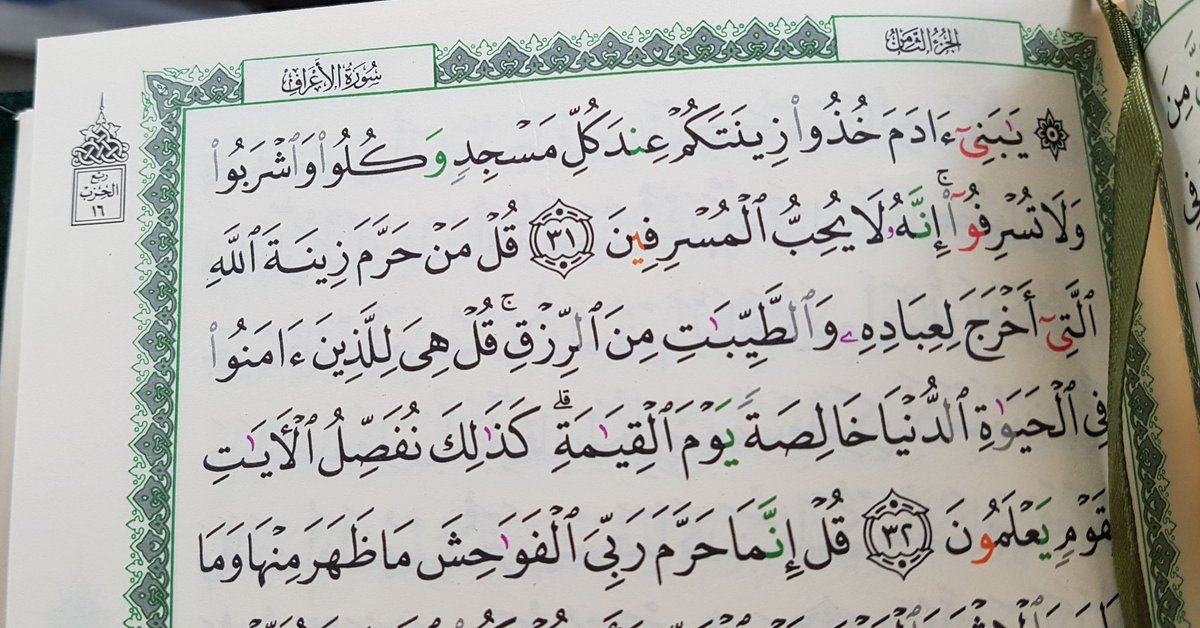 سُورَةُ الأَعْرَافِ
الجُزْءُ الثَّامِنُ
رُبْع
الحِزْب
١٦
۞ يَٰبَنِىٓ ءَادَمَ خُذُوا۟ زِينَتَكُمْ عِندَ كُلِّ مَسْجِدٍ وَكُلُوا۟ وَٱشْرَبُوا۟
وَلَا تُسْرِفُوٓا۟ ۚ إِنَّهُۥ لَا يُحِبُّ ٱلْمُسْرِفِينَ ٣١ قُلْ مَنْ حَرَّمَ زِينَةَ ٱللَّهِ
ٱلَّتِىٓ أَخْرَجَ لِعِبَادِهِۦ وَٱلطَّيِّبَٰتِ مِنَ ٱلرِّزْقِ ۚ قُلْ هِىَ لِلَّذِينَ ءَامَنُوا۟
فِى ٱلْحَيَوٰةِ ٱلدُّنْيَا خَالِصَةً يَوْمَ ٱلْقِيَٰمَةِ ۗ كَذَٰلِكَ نُفَصِّلُ ٱلْءَايَٰتِ
لِقَوْمٍ يَعْلَمُونَ ٣٢ قُلْ إِنَّمَا حَرَّمَ رَبِّىَ ٱلْفَوَٰحِشَ مَا ظَهَرَ مِنْهَا وَمَا